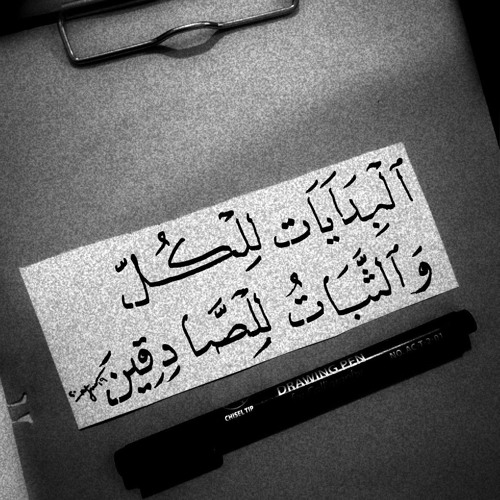 ٱلْبِدَايَات لِلْكُلّ
وَٱلثَّبَاتُ لِلْصَّادِقِين
DRAWING PEN
CHISEL TIP